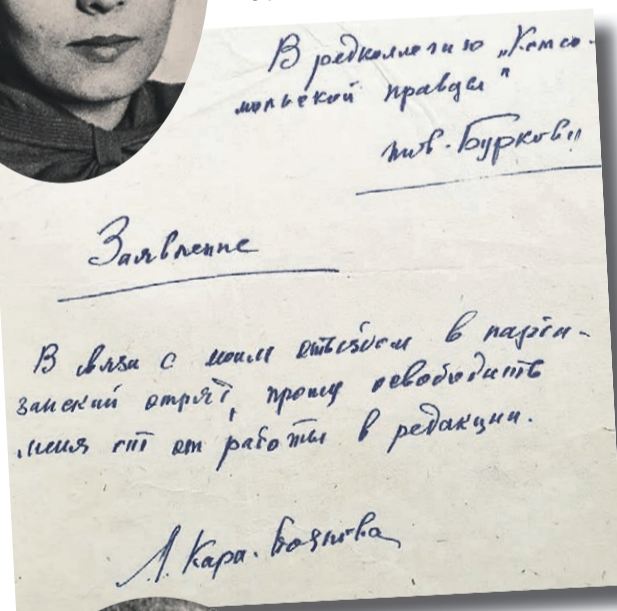 В редколлегию „Комсо-
мольской правды"
тов. Буркову
Заявление
В связи с моим отъездом в парти-
занский отряд, прошу освободить
меня от работы в редакции.
Л. Кара-